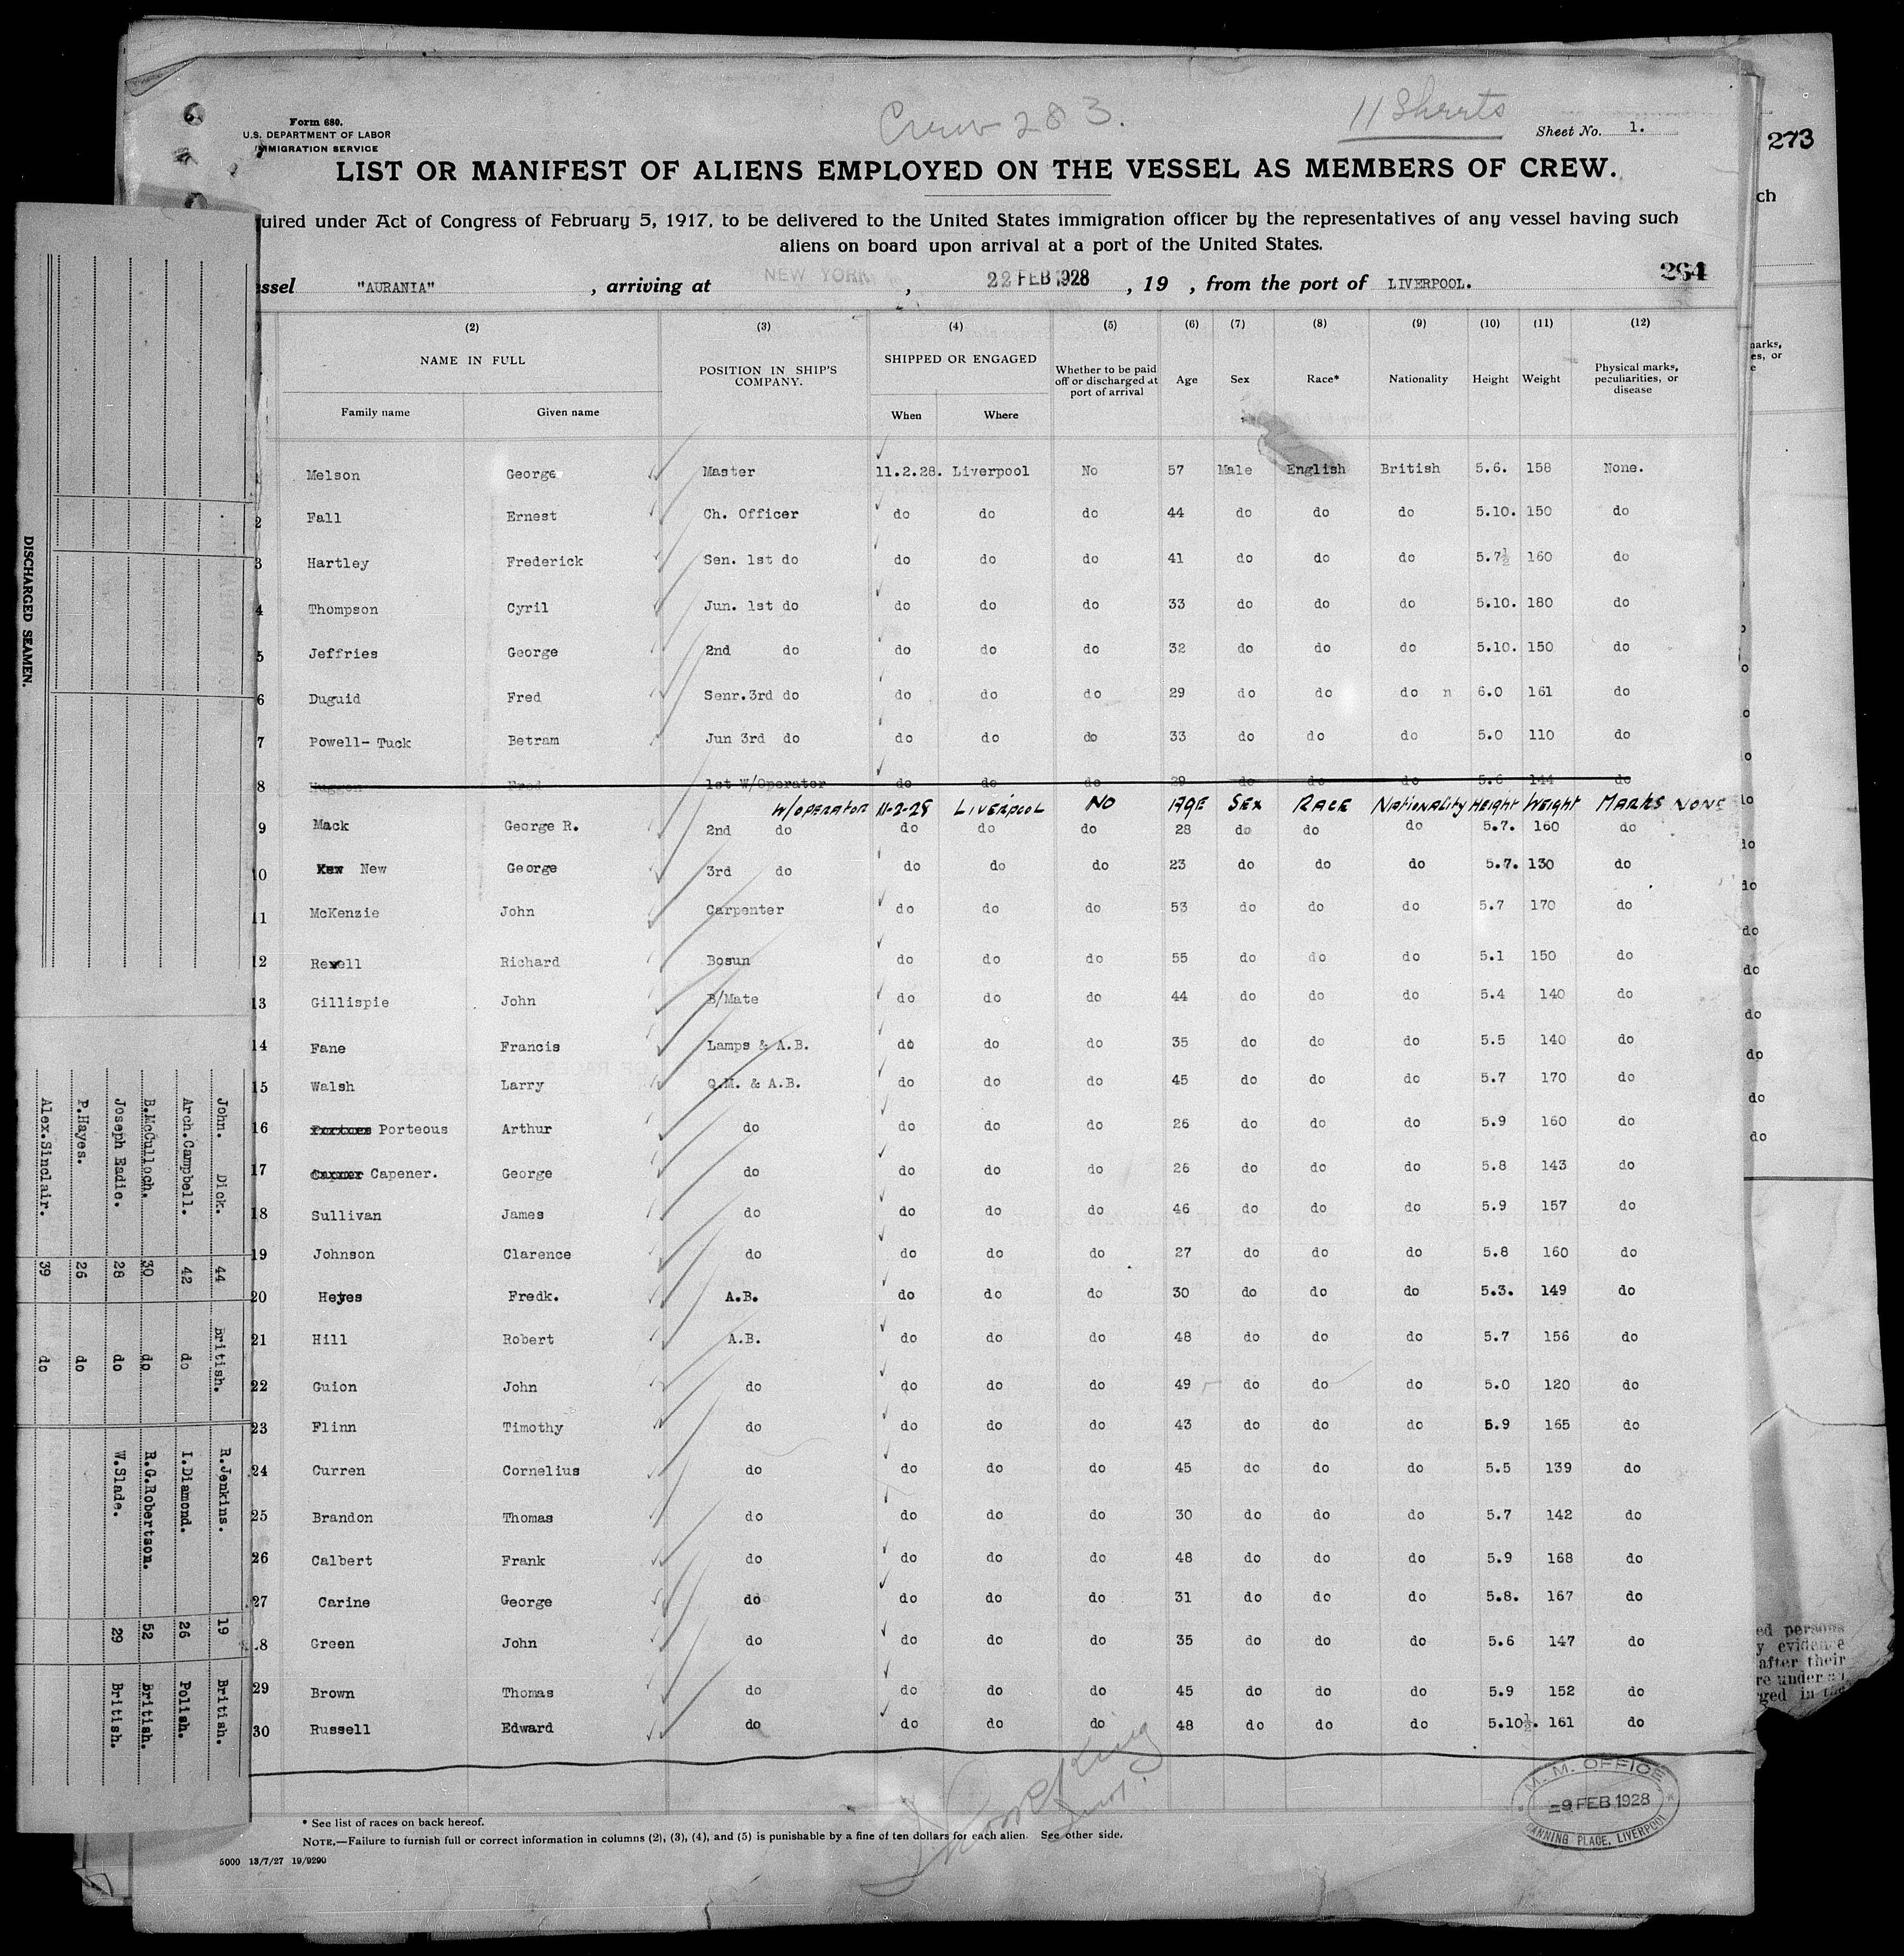 Crew 283.
11 Sheets
Form 680.
U.S. DEPARTMENT OF LABOR
IMMIGRATION SERVICE
Sheet No. 1.
273
LIST OR MANIFEST OF ALIENS EMPLOYED ON THE VESSEL AS MEMBERS OF CREW.
uired under Act of Congress of February 5, 1917, to be delivered to the United States immigration officer by the representatives of any vessel having such
aliens on board upon arrival at a port of the United States.
ch
264
essel "AURANIA" , arriving at NEW YORK , 22 FEB 1928 , 19 , from the port of LIVERPOOL.
(2) (3) (4) (5) (6) (7) (8) (9) (10) (11) (12)
NAME IN FULL POSITION IN SHIP'S COMPANY. SHIPPED OR ENGAGED Whether to be paid off or discharged at port of arrival Age Sex Race* Nationality Height Weight Physical marks, peculiarities, or disease
Family name Given name When Where
Melson George Master 11.2.28. Liverpool No 57 Male English British 5.6. 158 None.
2 Fall Ernest Ch. Officer do do do 44 do do do 5.10. 150 do
3 Hartley Frederick Sen. 1st do do do do 41 do do do 5.7½ 160 do
4 Thompson Cyril Jun. 1st do do do do 33 do do do 5.10. 180 do
5 Jeffries George 2nd do do do do 32 do do do 5.10. 150 do
6 Duguid Fred Senr.3rd do do do do 29 do do do n 6.0 161 do
7 Powell- Tuck Betram Jun 3rd do do do do 33 do do do 5.0 110 do
8 Fred 1st W/Operator do do do 29 do do do 5.6 144 do
W/OPERATOR 11-2-28 LIVERPOOL NO AGE SEX RACE NATIONALITY HEIGHT WEIGHT MARKS NONE
9 Mack George R. 2nd do do do do 28 do do do 5.7. 160 do
10 New George 3rd do do do do 23 do do do 5.7. 130 do
11 McKenzie John Carpenter do do do 53 do do do 5.7 170 do
12 Revell Richard Bosun do do do 55 do do do 5.1 150 do
13 Gillispie John B/Mate do do do 44 do do do 5.4 140 do
14 Fane Francis Lamps & A.B. do do do 35 do do do 5.5 140 do
15 Walsh Larry Q.M. & A.B. do do do 45 do do do 5.7 170 do
16 Porteous Arthur do do do do 26 do do do 5.9 160 do
17 Capener. George do do do do 26 do do do 5.8 143 do
18 Sullivan James do do do do 46 do do do 5.9 157 do
19 Johnson Clarence do do do do 27 do do do 5.8 160 do
20 Heyes Fredk. A.B. do do do 30 do do do 5.3. 149 do
21 Hill Robert A.B. do do do 48 do do do 5.7 156 do
22 Guion John do do do do 49 do do do 5.0 120 do
23 Flinn Timothy do do do do 43 do do do 5.9 165 do
24 Curren Cornelius do do do do 45 do do do 5.5 139 do
25 Brandon Thomas do do do do 30 do do do 5.7 142 do
26 Calbert Frank do do do do 48 do do do 5.9 168 do
27 Carine George do do do do 31 do do do 5.8. 167 do
8 Green John do do do do 35 do do do 5.6 147 do
29 Brown Thomas do do do do 45 do do do 5.9 152 do
30 Russell Edward do do do do 48 do do do 5.10½. 161 do
* See list of races on back hereof.
NOTE.—Failure to furnish full or correct information in columns (2), (3), (4), and (5) is punishable by a fine of ten dollars for each alien. See other side.
5000 13/7/27 19/9290
M. M. OFFICE
9 FEB 1928
CANNING PLACE, LIVERPOOL
DISCHARGED SEAMEN.
John. Dick. 44 British. R.Jenkins. 19 British.
Arch.Campbell. 42 do I.Diamond. 26 Polish.
B.McCulloch. 30 do R.G.Robertson. 52 British.
Joseph Eadie. 28 do W.Slade. 29 British.
P.Hayes. 26 do
Alex.Sinclair. 39 do
arks,
es, or
e
ed persons
y evidence
after their
re under an
ged in the